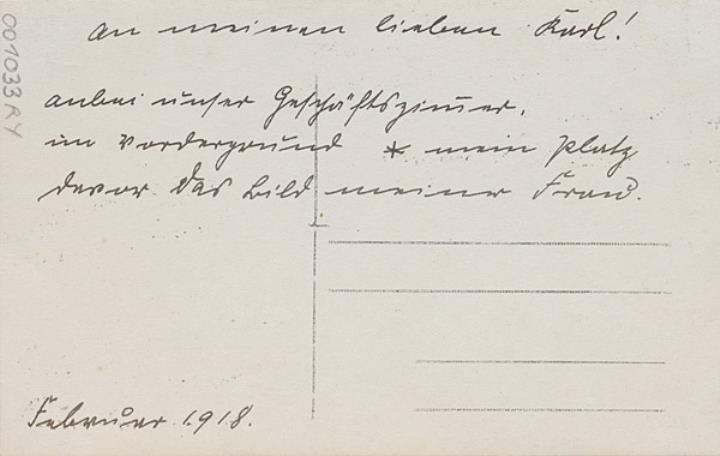 An meinen lieben Karl!
anbei unser Geschäftszimmer.
im Vordergrund * mein Platz
davor das Bild meiner Frau.
Februar 1918.
001033 RY